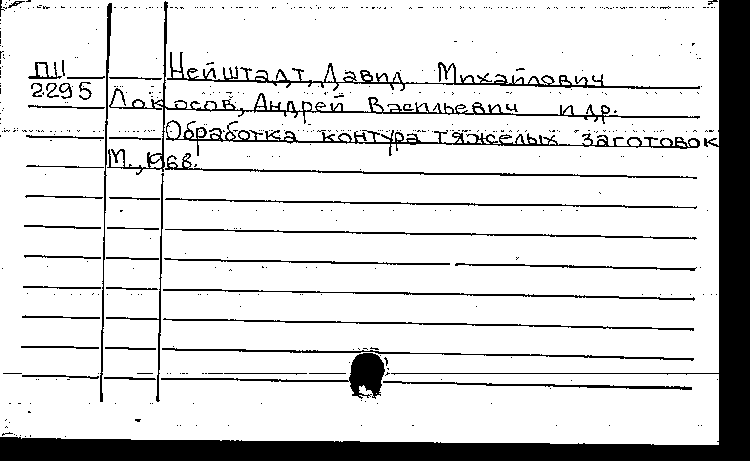 П11
2295
Нейштадт, Давид Михайлович
Локосов, Андрей Васильевич и др.
Обработка контура тяжелых заготовок
М., 1968.